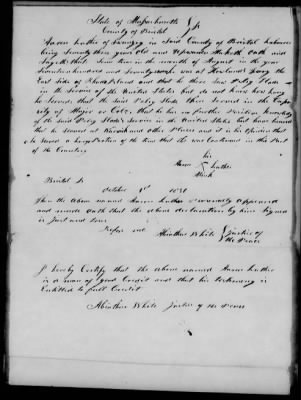 State of Massachusetts
County of Bristol } Ss
Aaron Luther of Swanzey in Said County of Bristol Laborer
being Seventy three years Old and upwards Maketh Oath and
Sayeth that Some time in the month of August in the year
Seventeen hundred and Seventy was at Howlands ferry the
East side of Rhode Island and that he there saw Peleg Slade
in the Service of the United States but do not know how long
he Served; that the said Peleg Slade then Served in the Capa
city of Major or Colo. that he has no further Positive knowledge
of the said Peleg Slade's Service in the United States but have heard
that he served at and other Places and it is his Opinion that
he Served a large Portion of the time that the war Continued in this Part
of the Country
his
Aaron Luther
Mark
Bristol Ss
October 1st
Then the above named Aaron Luther Personally appeared
and made Oath that the above declaration by him Signed
is Just and true
Before me Abiathar White } Justice of
the Peace
I hereby Certify that the above named Aaron Luther
is a man of good Credit and that his testimony is
Entitled to full Credit
Abiathar White Justice of the Peace